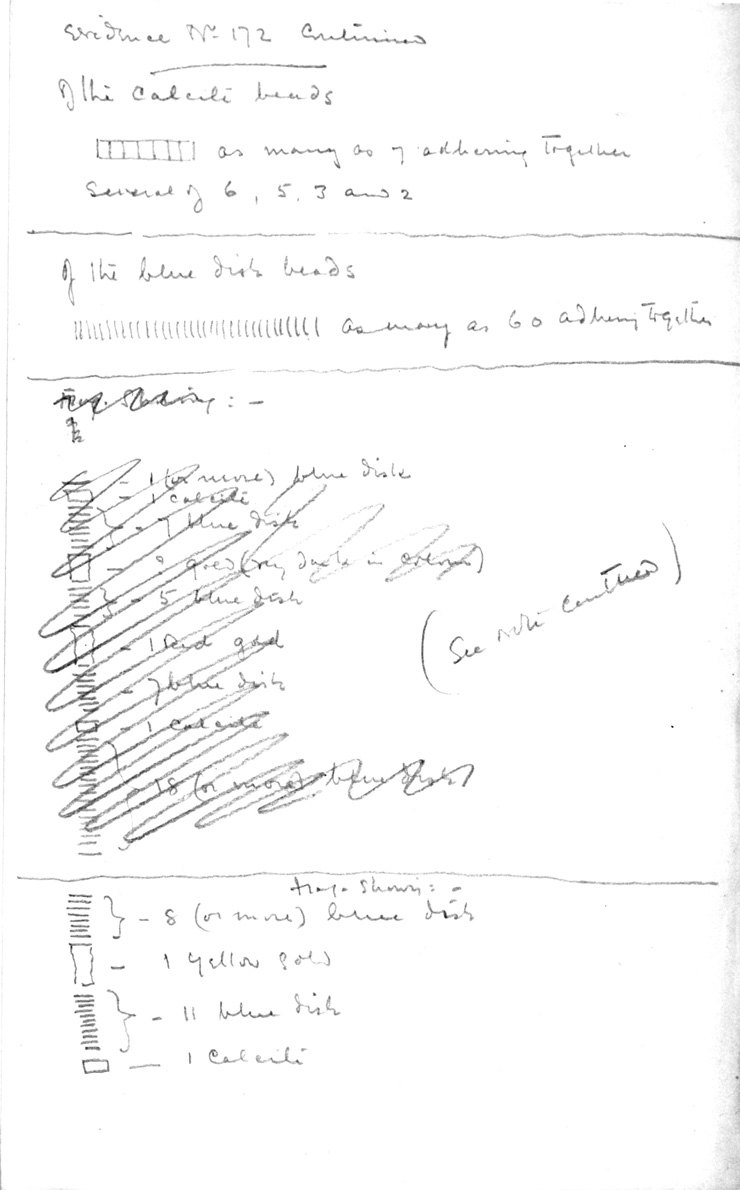 Evidence No 172 Continued
Of the Calcite beads
as many as 7 adhering together
Several of 6, 5, 3 and 2
Of the blue disk beads
as many as 60 adhering together
Frag. Showing : -
- 1 (or more) blue disk
- 1 calcite
- 7 blue disk
- ? gold (very dark in colour)
- 5 blue disk
- 1 Red gold
- 7 blue disk
- 1 calcite
- 18 (or more) blue disk
(See note Continued)
frag. Showing : -
- 8 (or more) blue disk
- 1 yellow gold
- 11 blue disk
- 1 Calcite